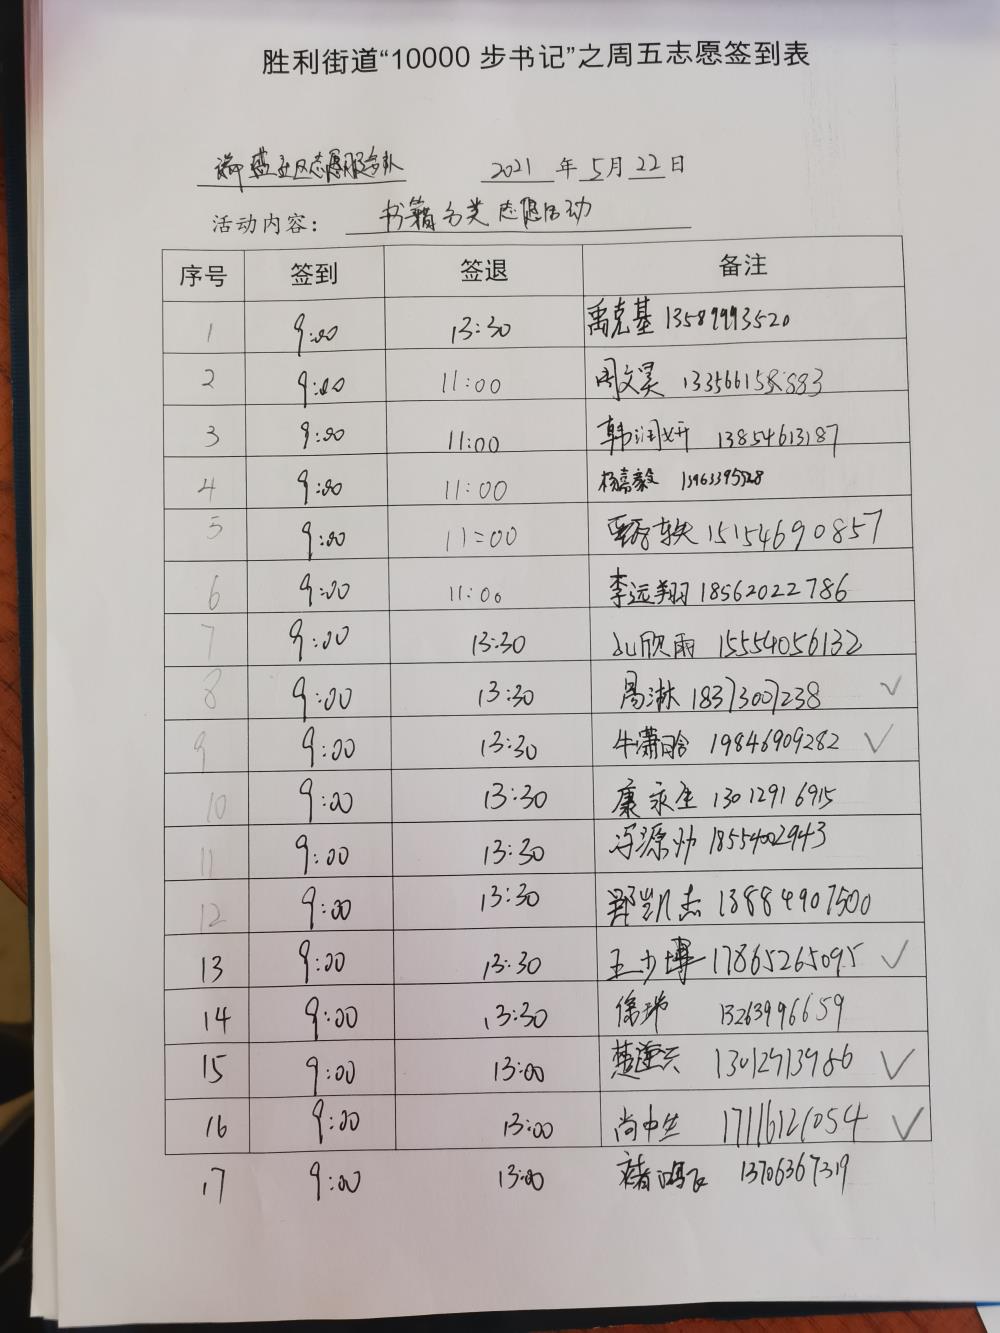 胜利街道“10000 步书记”之周五志愿签到表
社区志愿服务队 2021 年 5 月 22 日
活动内容： 书籍分类志愿活动
序号 签到 签退 备注
1 9:00 13:30 禹克基 13589993520
2 9:00 11:00 周文昊
3 9:00 11:00 韩润妍 13854613187
4 9:00 11:00 杨嘉毅
5 9:00 11:00 15154690857
6 9:00 11:00 李远翔 18562022786
7 9:00 13:30 山欣雨 15554056132
8 9:00 13:30 周淋 18373007238 ✓
9 9:00 13:30 牛潇晗 19846909282 ✓
10 9:00 13:30 康永生 13012916915
11 9:00 13:30 冯源帅 18554002943
12 9:00 13:30 郑凯杰 13884907500
13 9:00 13:30 王少博 17865265095 ✓
14 9:00 13:30 徐瑞 13263996659
15 9:00 13:00 13012913986 ✓
16 9:00 13:00 尚中生 17116121054 ✓
17 9:00 13:00 褚鸿飞 13706367319